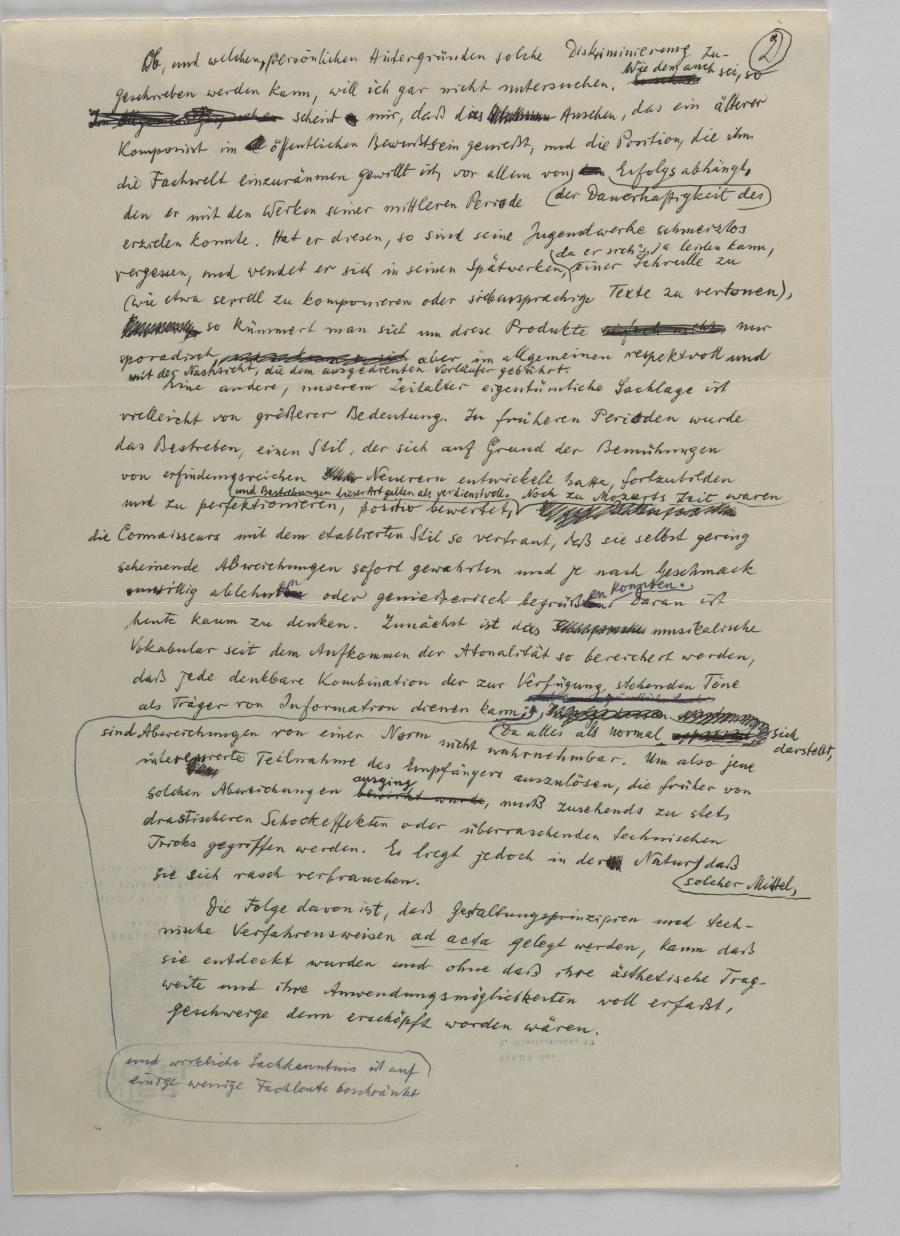 2)
Ob, und welchen, persönlichen Hintergründen solche Diskriminierung zu-
geschrieben werden kann, will ich gar nicht untersuchen. Wie dem auch sei, so
scheint mir, daß das Ansehen, das ein älterer
Komponist im öffentlichen Bewußtsein genießt, und die Position, die ihm
die Fachwelt einzuräumen gewillt ist, vor allem von Erfolgs abhängt,
den er mit den Werken seiner mittleren Periode (der Dauerhaftigkeit des)
erzielen konnte. Hat er diesen, so sind seine Jugendwerke schmerzlos
vergessen, und wendet er sich in seinen Spätwerken, (da er sich's ja leisten kann, einer Schrulle zu
(wie etwa seriell zu komponieren oder silbensprachige Texte zu vertonen),
so kümmert man sich um diese Produkte einfach nicht, nur
sporadisch, aber im allgemeinen respektvoll und
mit der Nachsicht, die dem ausgedienten Vorläufer gebührt.
Eine andere, unserem Zeitalter eigentümliche Sachlage ist
vielleicht von größerer Bedeutung. In früheren Perioden wurde
das Bestreben, einen Stil, der sich auf Grund der Bemühungen
von erfindungsreichen Neuerern entwickelt hatte, fortzubilden
und Bestrebungen dieser Art galten als verdienstvoll. Noch zu Mozarts Zeit waren
und zu perfektionieren, positiv bewertet,
die Connaisseurs mit dem etablierten Stil so vertraut, daß sie selbst gering
scheinende Abweichungen sofort gewahrten und je nach Geschmack
unwillig ablehnten oder genießerisch begrüßen konnten. Daran ist
heute kaum zu denken. Zunächst ist das musikalische
Vokabular seit dem Aufkommen der Atonalität so bereichert worden,
daß jede denkbare Kombination der zur Verfügung stehenden Töne
als Träger von Information dienen kann;
(Da alles als normal sich darstellt,
sind Abweichungen von einer Norm nicht wahrnehmbar. Um also jene
interessierte Teilnahme des Empfängers auszulösen, die früher von
solchen Abweichungen ausging bewirkt wurde, muß zusehends zu stets
drastischeren Schockeffekten oder überraschenden technischen
Tricks gegriffen werden. Es liegt jedoch in der Natur daß
solcher Mittel,
sie sich rasch verbrauchen.
Die Folge davon ist, daß Gestaltungsprinzipien und tech-
nische Verfahrensweisen ad acta gelegt werden, kaum daß
sie entdeckt wurden und ohne daß ihre ästhetische Trag-
weite und ihre Anwendungsmöglichkeiten voll erfaßt,
geschweige denn erschöpft worden wären.
und wirkliche Sachkenntnis ist auf
einige wenige Fachleute beschränkt